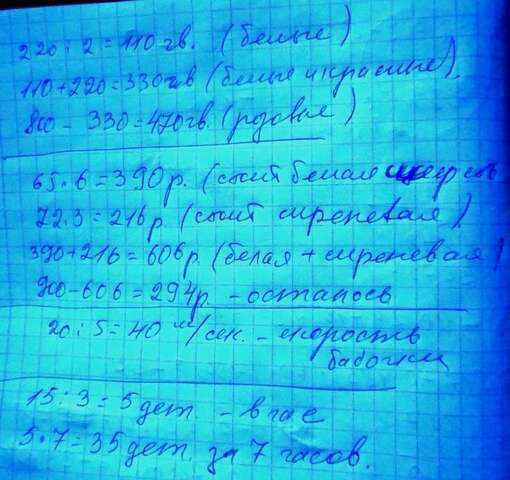 220 : 2 = 110 цв. (белые)
110 + 220 = 330 цв (белые и красные).
800 - 330 = 470 цв. (розовые)
65 · 6 = 390 р. (стоит белая
72 · 3 = 216 р. (стоит сиреневая)
390 + 216 = 606 р. (белая + сиреневая)
900 - 606 = 294 р. - осталось
20 : 5 = 40 м/сек. - скорость
бабочки
15 : 3 = 5 дет. - в час
5 · 7 = 35 дет. за 7 часов.